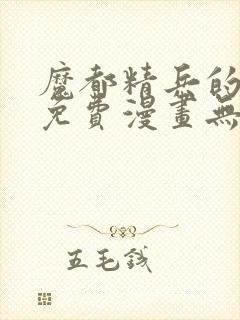 魔都精兵的
免費漫畫無
五毛錢